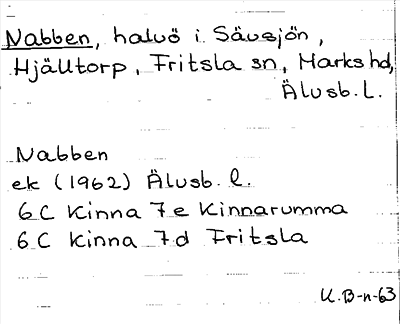 Nabben, halvö i Sävsjön,
Hjälltorp, Fritsla sn, Marks hd,
Älvsb. L.
Nabben
ek (1962) Älvsb. l.
6 C Kinna 7 e Kinnarumma
6 C Kinna 7 d Fritsla
K. B-n-63